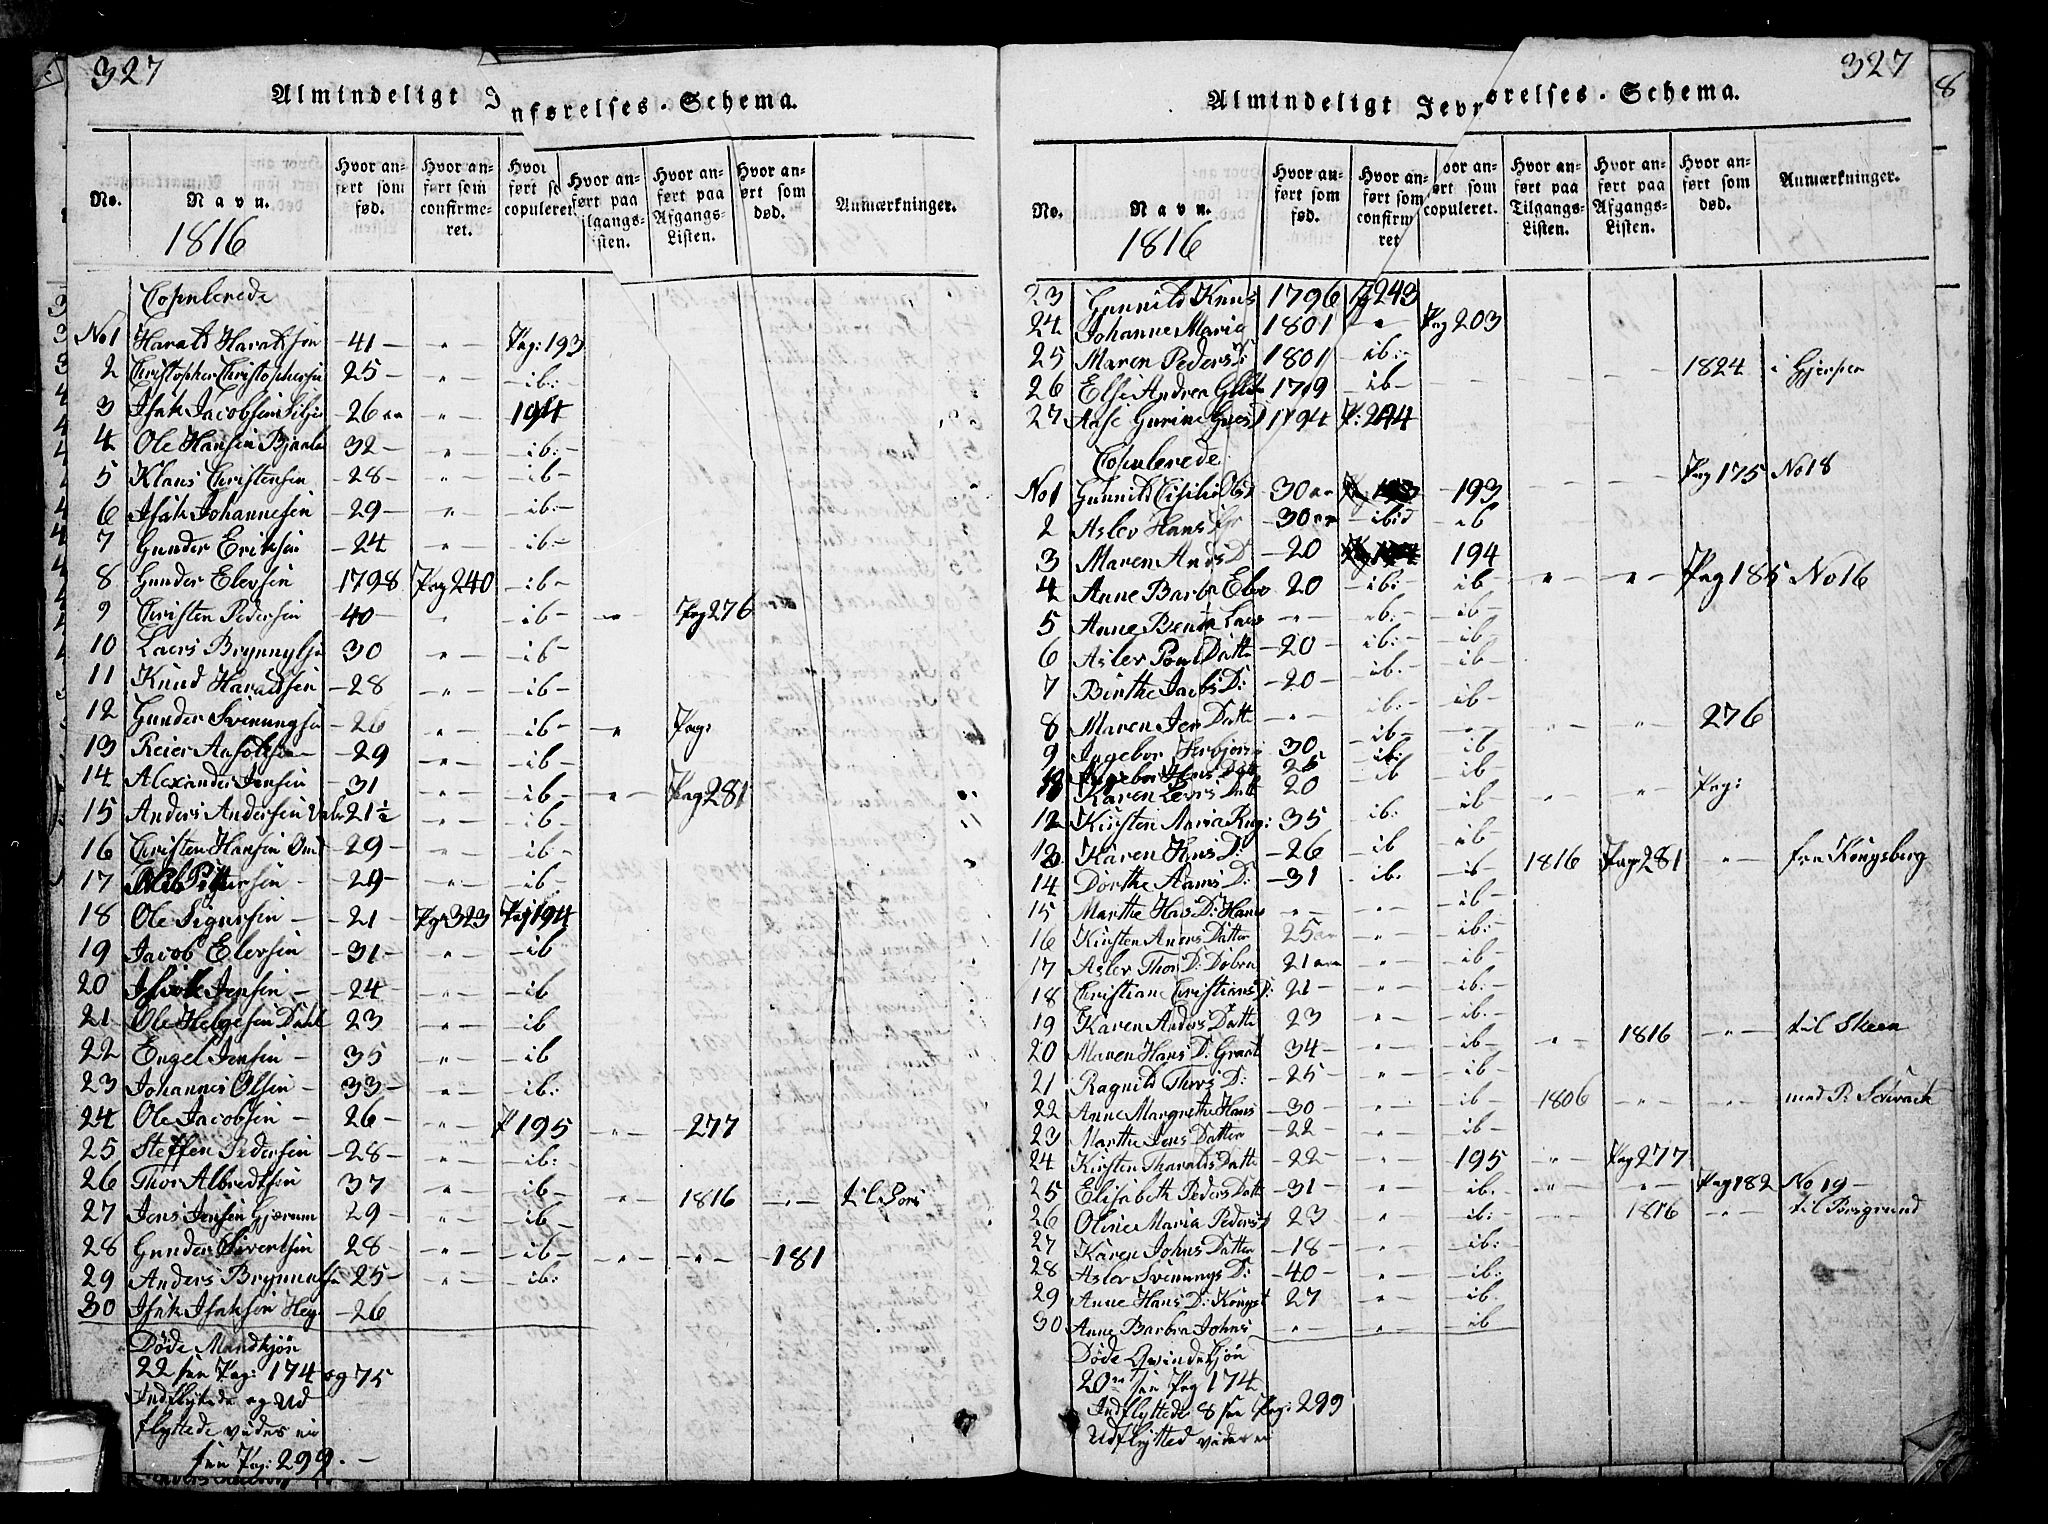 327
Almindeligt Jnførelses-Schema.
No. Navn. 1816 Hvor anført som fød. Hvor anført som confirmeret. Hvor anført som copuleret. Hvor anført paa Tilgangs-Listen. Hvor anført paa Afgangs-Listen. Hvor anført som død. Anmærkninger.
Copulerede
No 1 Harald Haraldsen 41 — „ — Pag: 193
2 Christopher Christophersen 25 — „ — ib: —
3 Isak Jacobsen 26 „ — 194
4 Ole Hansen 32 — „ — ib: —
5 Klaus Christensen 28 — „ — ib —
6 Isak Johannesen 29 — „ — ib: —
7 Gunder Eriksen 24 „ — ib: —
8 Gunder Elevsen 1798 Pag 240 ib —
9 Christen Pedersen 40 — „ ib — „ — Pag 276
10 Laers 30 „ — ib —
11 Knud Haraldsen 28 „ — ib —
12 Gunder Svenungsen 26 „ — ib — „ Pag:
13 Reier 29 „ — ib —
14 Alexander Jensen 31 „ — ib — „ — Pag 281
15 Anders Andersen 21½ „ — ib —
16 Christen Hansen 29 — „ — ib: —
17 29 — „ — ib —
18 Ole 21 — Pag 323 Pag 194
19 Jacob Elevsen 31 — „ — ib
20 Jensen 24 — „ — ib
21 Ole Helgesen Dahl 23 „ — ib
22 Engel Jensen 35 „ ib
23 Johannes Olsen 33 — „ — ib:
24 Ole Jacobsen 26 — „ — P 195 „ — 277
25 Steffen Pedersen 28 — „ — ib: —
26 Thor Albredtsen 37 „ — ib — „ — 1816 „ — til Pors
27 Jens Jensen Gjerum 29 — „ — ib —
28 Gunder Sivertsen 28 — „ — ib — „ — „ — 181
29 Anders 25 — „ — ib:
30 Isak Isaksen 26
Døde Mandkjøn
22 see Pag: 174 og 75
Indflytede og Ud
flyttede vides ei
see Pag: 299. —
327
Almindeligt Jevnførelses-Schema.
No. Navn. 1816 Hvor anført som fød. Hvor anført som confirmeret Hvor anført som copuleret. Hvor anført paa Tilgangs-Listen. Hvor anført paa Afgangs-Listen. Hvor anført som død. Anmærkninger.
23 Gunnild Knus 1796 Pg 243
24 Johanne Maria 1801 — „ Pag 203
25 Maren Peders D: 1801 ib: —
26 Else Andrea ib — 1824 i Gjerpen
27 1794 P: 244
Copulerede
No 1 Gunnild 30 193 Pag 175 No 18
2 Aslev Hans 30 ibid ib
3 Maren Ands D 20 194
4 Anne Barba 20 ib: — ib — „ — „ — Pag 185 No 16
5 Anne — „ — ib: — ib —
6 Aslev Poul Datte 20 — ib: — ib —
7 Birthe Jacbs D: 20 — ib: — ib —
8 Maren Jen Datte — „ — ib: — ib — „ 276
9 Ingebor 30 ib —
Ingebor Hans Datt 25 ib. ib
Karen Datt 20 ib ib — Pag:
12 Kirsten Maria 35 ib: ib — „ — „ —
13 Karen Hans D: 26 ib ib —
14 Dorthe D: 31 ib. ib 1816 Pag 281 „ — fra Kongsberg
15 Marthe Hans D: „ — „ — ib —
16 Kirsten Anders Datter 25 „ — ib: —
17 Aslev Thor D: 21 „ — ib —
18 Christiane Christians D: 21 — „ — ib: —
19 Karen Anders Datte 23 „ — ib: —
20 Maren Hans D: 34 — „ — ib — „ — 1816 „ — til Skeen
21 Ragnild Thors D: 25 — „ — ib —
22 Anne Margrethe Hans 30 — „ — ib — 1806 „ — „ — med P.
23 Marthe Jens Datter 22 — „ — ib —
24 Kirsten Tharalds Datte 22 — „ — 195 „ — Pag 277
25 Elisabeth Peders Datt 31 — „ — ib. „ — „ — Pag 182 No 19 —
26 Oline Maria Peders 23 „ ib: — 1816 „ — til Porsgrund
27 Karen Johns Datter 18 — „ — ib:
28 Aslev Svenungs D: 40 — „ — ib:
29 Anne Hans D: 27 „ — ib.
30 Anne Barbra Johns „ — „ — ib
Døde Qvindekjøn
20 see Pag 174
Indflyttede 8 see Pag: 299
Udflytted vides ei
8